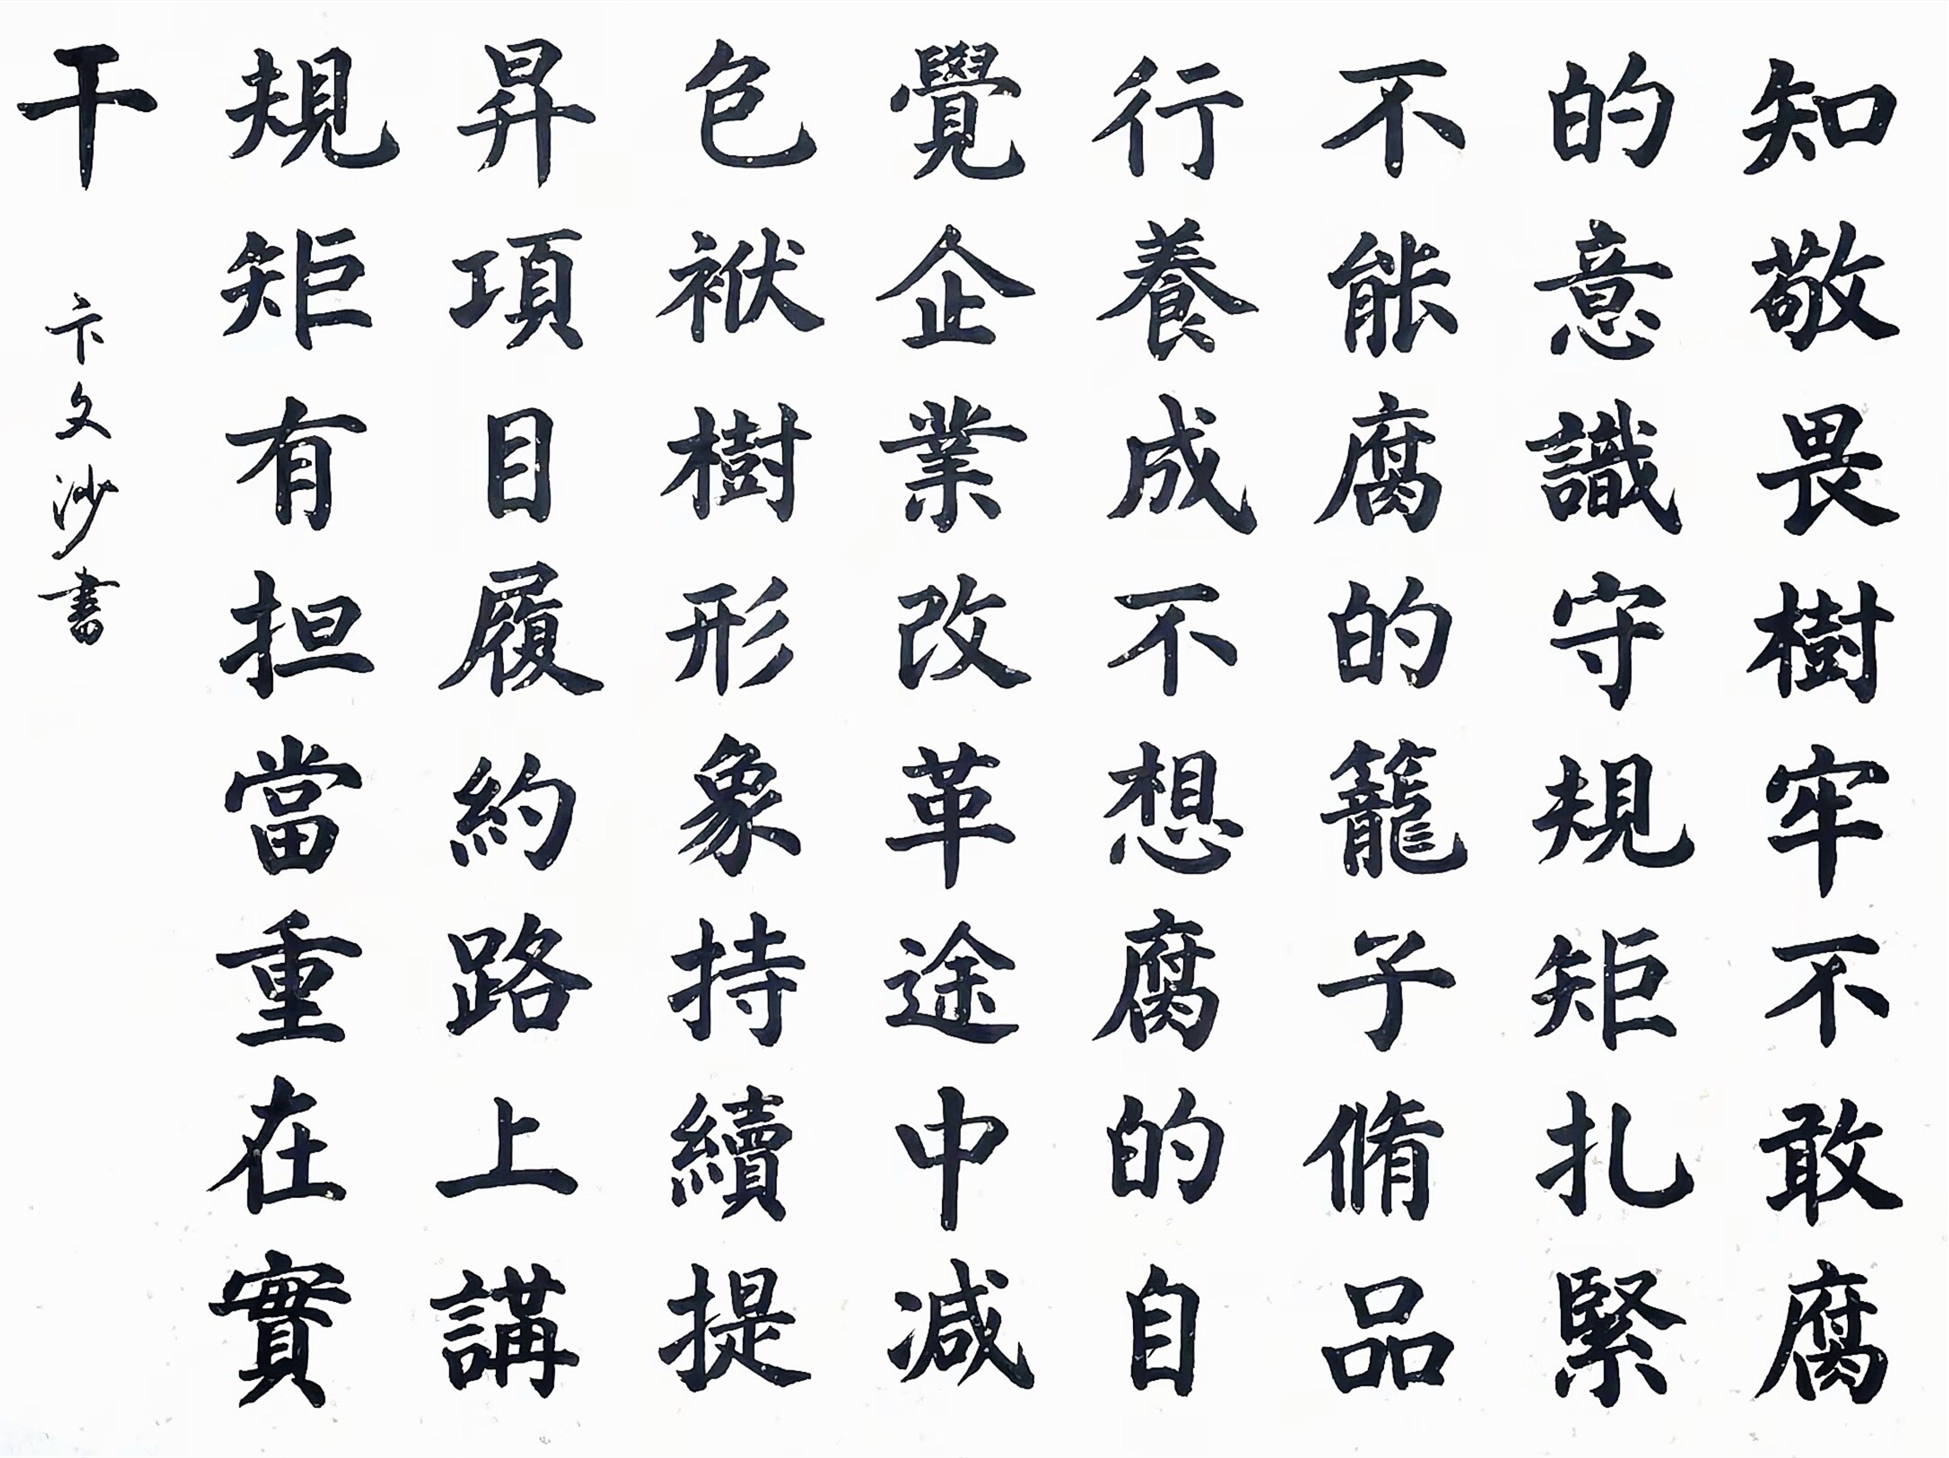 知敬畏樹牢不敢腐
的意識守規矩扎緊
不能腐的籠子脩品
行養成不想腐的自
覺企業改革途中减
包袱樹形象持續提
昇項目履約路上講
規矩有担當重在實
干
卞文沙書